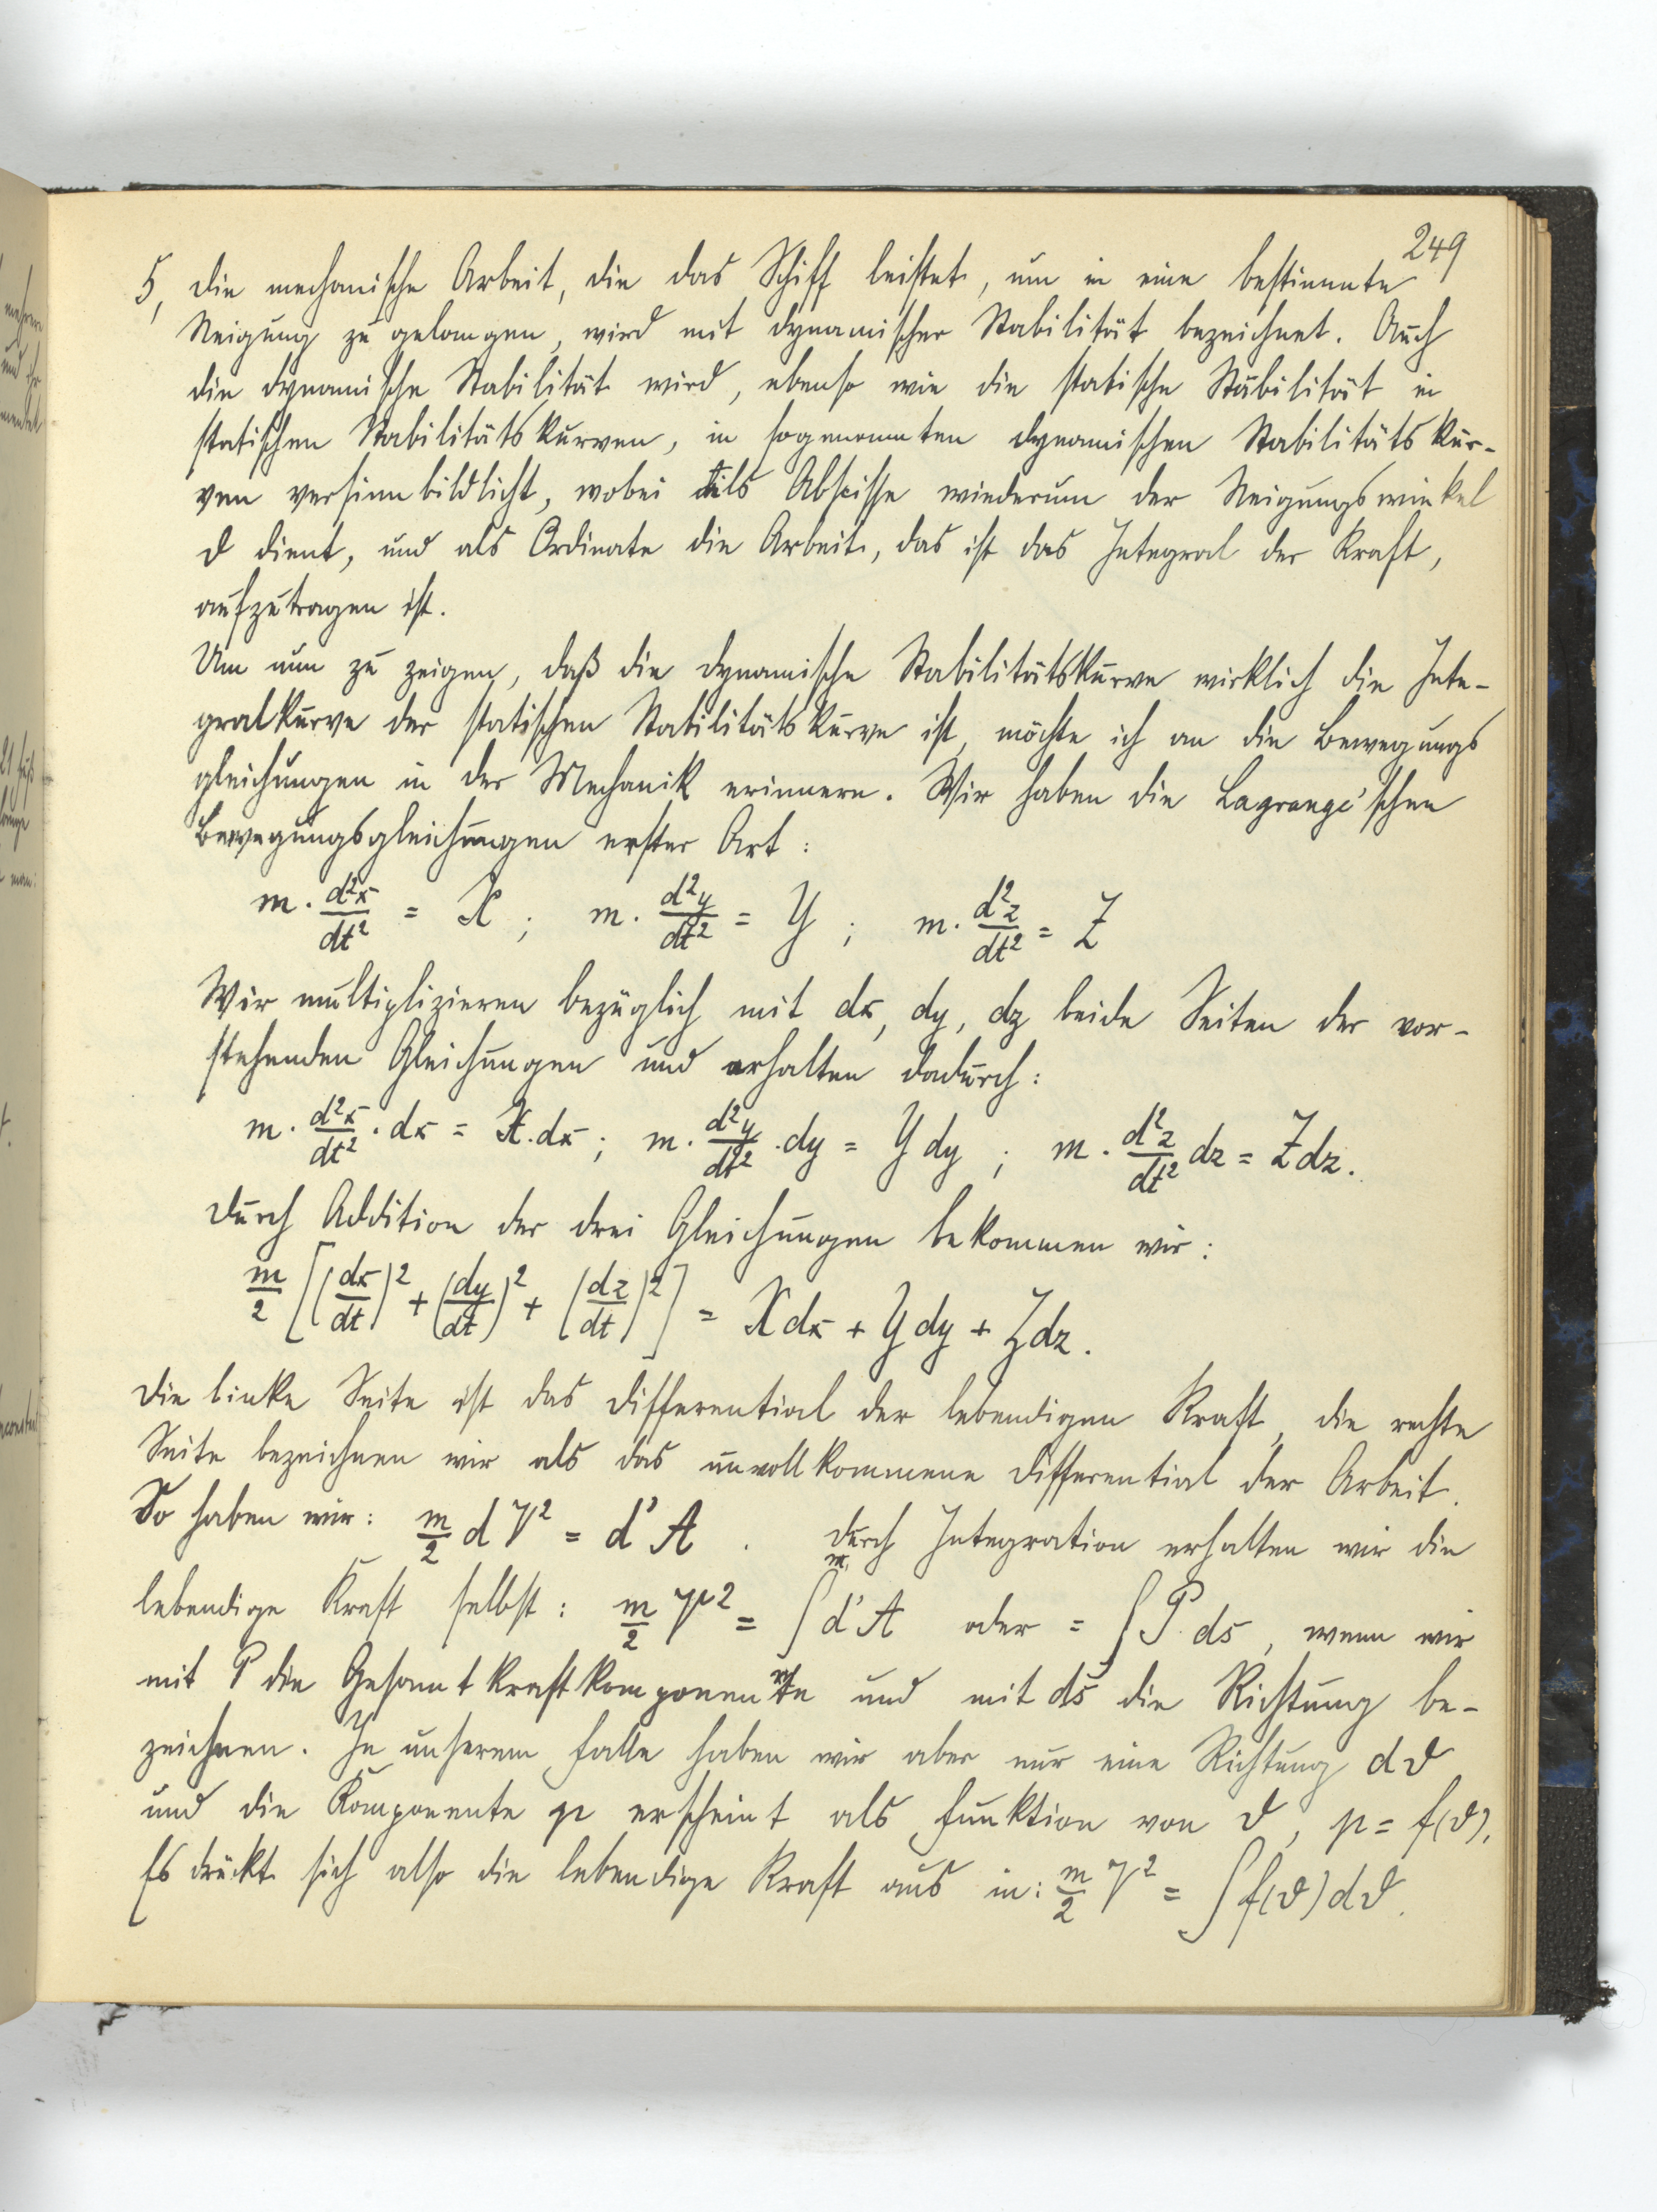 249
5, Die mechanische Arbeit, die das Schiff leistet, um in eine bestimmte
Neigung zu gelangen, wird mit dynamischer Stabilität bezeichnet. Auch
die dynamische Stabilität wird, ebenso wie die statische Stabilität in
statischen Stabilitätskurven, in sogenannten dynamischen Stabilitätskur-
ven versinnbildlicht, wobei als Abscisse wiederum der Neigungswinkel
ϑ dient, und als Ordinate die Arbeit, das ist das Integral der Kraft,
aufzutragen ist.
Um nun zu zeigen, daß die dynamische Stabilitätskurve wirklich die Inte-
gralkurve der statischen Stabilitätskurve ist, möchte ich an die Bewegungs
gleichungen in der Mechanik erinnern. Wir haben die Lagrange'schen
Bewegungsgleichungen erster Art:
m · d²x/dt² = X ; m · d²y/dt² = Y ; m · d²z/dt² = Z
Wir multiplizieren bezüglich mit dx, dy, dz beide Seiten der vor-
stehenden Gleichungen und erhalten dadurch:
m · d²x/dt² · dx = X · dx ; m · d²y/dt² · dy = Y dy ; m · d²z/dt² dz = Z dz.
Durch Addition der drei Gleichungen bekommen wir:
m/2 [(dx/dt)² + (dy/dt)² + (dz/dt)²] = X dx + Y dy + Z dz.
Die linke Seite ist das Differential der lebendigen Kraft, die rechte
Seite bezeichnen wir als das unvollkommene Differential der Arbeit.
So haben wir: m/2 d V² = d' A . Durch Integration erhalten wir die
lebendige Kraft selbst: m/2 V² = ∫ d' A oder = ∫ P · ds, wenn wir
mit P die Gesamtkraftkomponente und mit ds die Richtung be-
zeichnen. In unserem Falle haben wir aber nur eine Richtung dϑ
und die Komponente p erscheint als Funktion von ϑ, p = f(ϑ).
Es drückt sich also die lebendige Kraft aus in: m/2 V² = ∫ f(ϑ) dϑ.